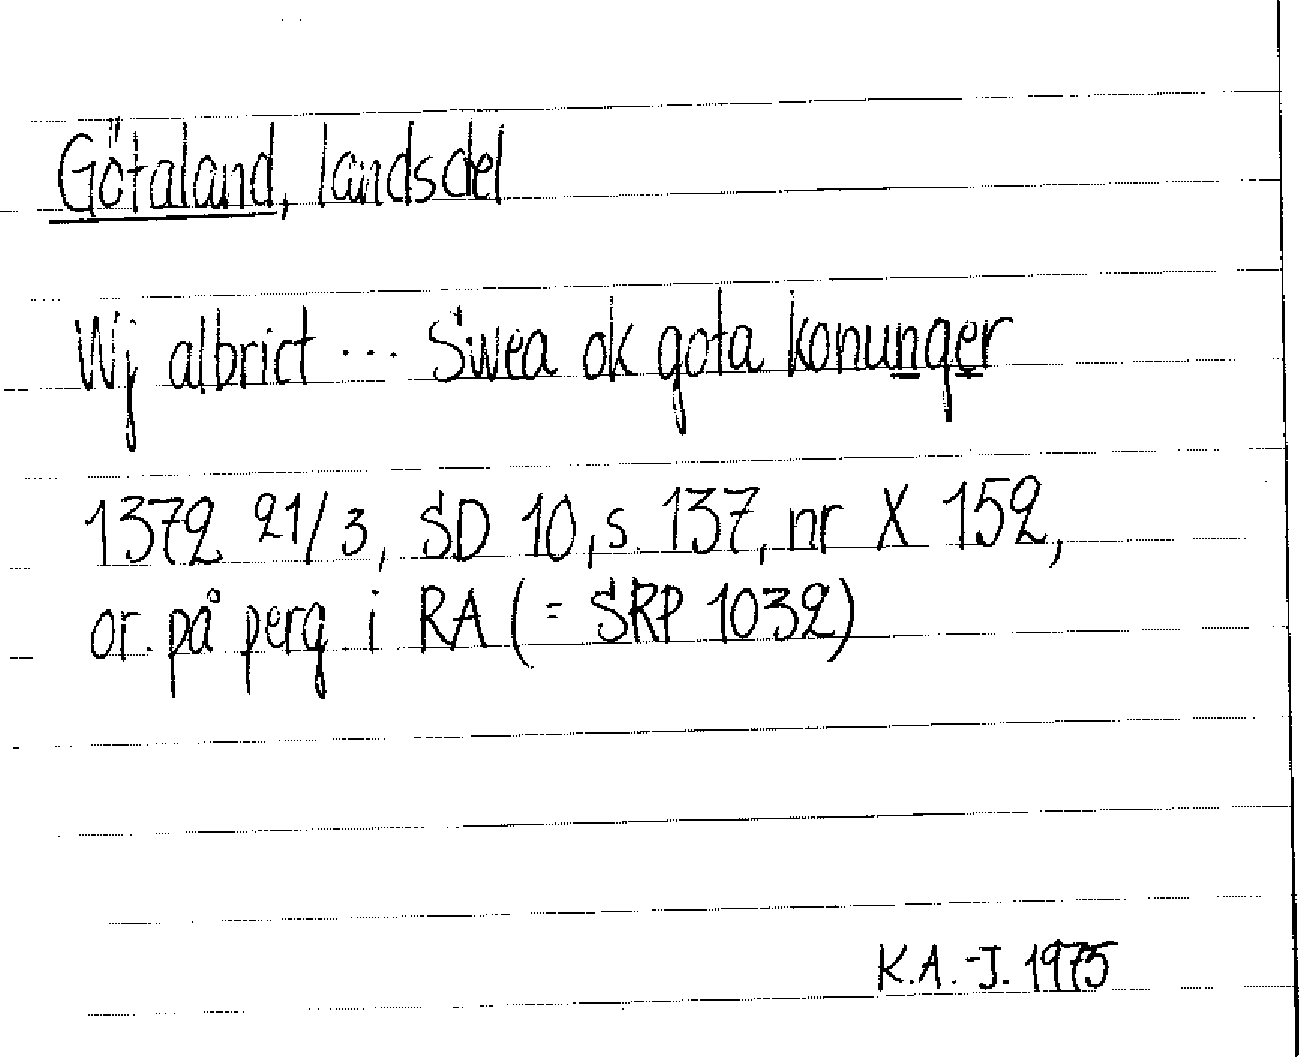 Götaland, landsdel
Wj albrict ... Swea ok gota konunger
1372 21/3, SD 10, s. 137, nr X 152,
or. på perg i RA (= SRP 1032)
K.A.-J. 1975